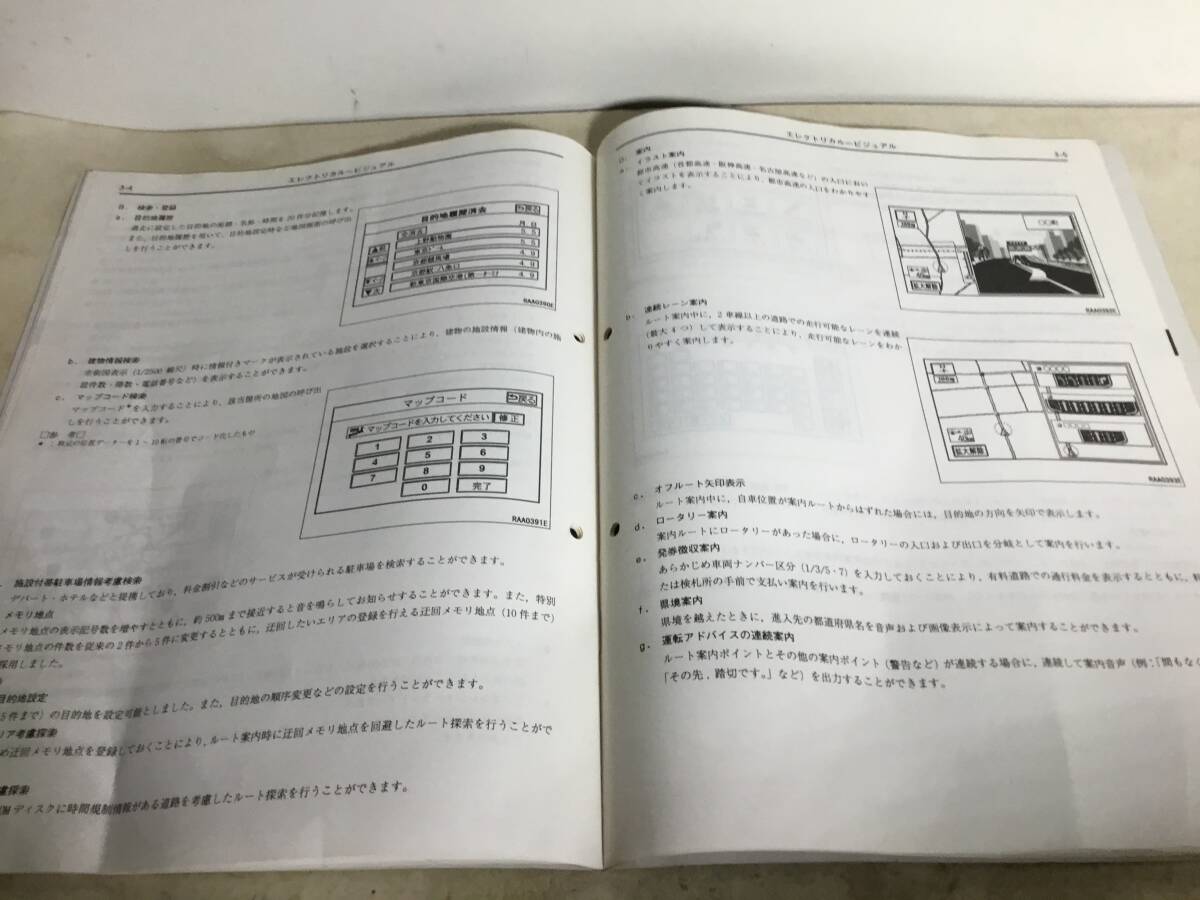 3-4
エレクトリカルービジュアル
B. 検索・登録
a. 目的地履歴
過去に設定した目的地の座標・名称・時間を20件分記憶します。
また、目的地履歴を用いて、目的地設定時など地図画面の呼び出
しを行うことができます。
目的地履歴消去
戻る
月 日
全消去
上野動物園
東京ドーム
京都競馬場
京都駅 八条口
4. 9
4. 9
4. 9
RAA0390E
b. 建物情報検索
市街図表示（1/2500 縮尺）時に情報付きマークが表示されている施設を選択することにより、建物の施設情報（建物内の施
設件数・階数・電話番号など）を表示することができます。
c. マップコード検索
マップコード*を入力することにより、該当箇所の地図の呼び出
しを行うことができます。
□参 考□
*：特定の位置データーを1～10桁の番号でコード化したもの
マップコード
戻る
マップコードを入力してください
修正
1 2 3
4 5 6
7 8 9
0 完了
RAA0391E
施設付帯駐車場情報考慮検索
デパート・ホテルなどと提携しており、料金割引などのサービスが受けられる駐車場を検索することができます。
メモリ地点
メモリ地点の表示記号数を増やすとともに、約500mまで接近すると音を鳴らしてお知らせすることができます。また、特別
モリ地点の件数を従来の2件から5件に変更するとともに、迂回したいエリアの登録を行える迂回メモリ地点（10件まで）
採用しました。
目的地設定
5件まで）の目的地を設定可能としました。また、目的地の順序変更などの設定を行うことができます。
リア考慮探索
め迂回メモリ地点を登録しておくことにより、ルート案内時に迂回メモリ地点を回避したルート探索を行うことがで
慮探索
OMディスクに時間規制情報がある道路を考慮したルート探索を行うことができます。
エレクトリカルービジュアル
3-5
D. 案内
a. イラスト案内
都市高速（首都高速・阪神高速・名古屋高速など）の入口におい
てイラストを表示することにより、都市高速の入口をわかりやす
く案内します。
拡大解除
b. 連続レーン案内
ルート案内中に、2車線以上の道路での走行可能なレーンを連続
（最大4つ）して表示することにより、走行可能なレーンをわか
りやすく案内します。
拡大解除
RAA0393E
c. オフルート矢印表示
ルート案内中に、自車位置が案内ルートからはずれた場合には、目的地の方向を矢印で表示します。
d. ロータリー案内
案内ルートにロータリーがあった場合に、ロータリーの入口および出口を分岐として案内を行います。
e. 発券徴収案内
あらかじめ車両ナンバー区分（1/3/5・7）を入力しておくことにより、有料道路での通行料金を表示するとともに、料
たは検札所の手前で支払い案内を行います。
f. 県境案内
県境を越えたときに、進入先の都道府県名を音声および画像表示によって案内することができます。
g. 運転アドバイスの連続案内
ルート案内ポイントとその他の案内ポイント（警告など）が連続する場合に、連続して案内音声（例：「間もなく
「その先、踏切です。」など）を出力することができます。